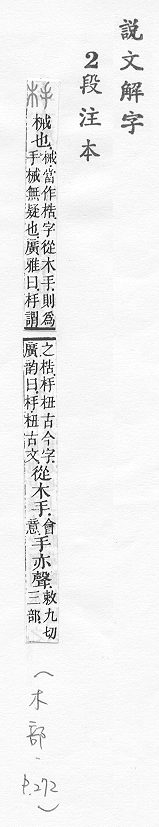 說文解字
2段注本
杽 械也.械當作梏.字從木手.則爲手械無疑也.廣雅曰.杽謂
之梏.杽杻古今字.廣韵曰.杽杻古文.從木手.會意.手亦聲.敕九切.三部
(木部.P.272)